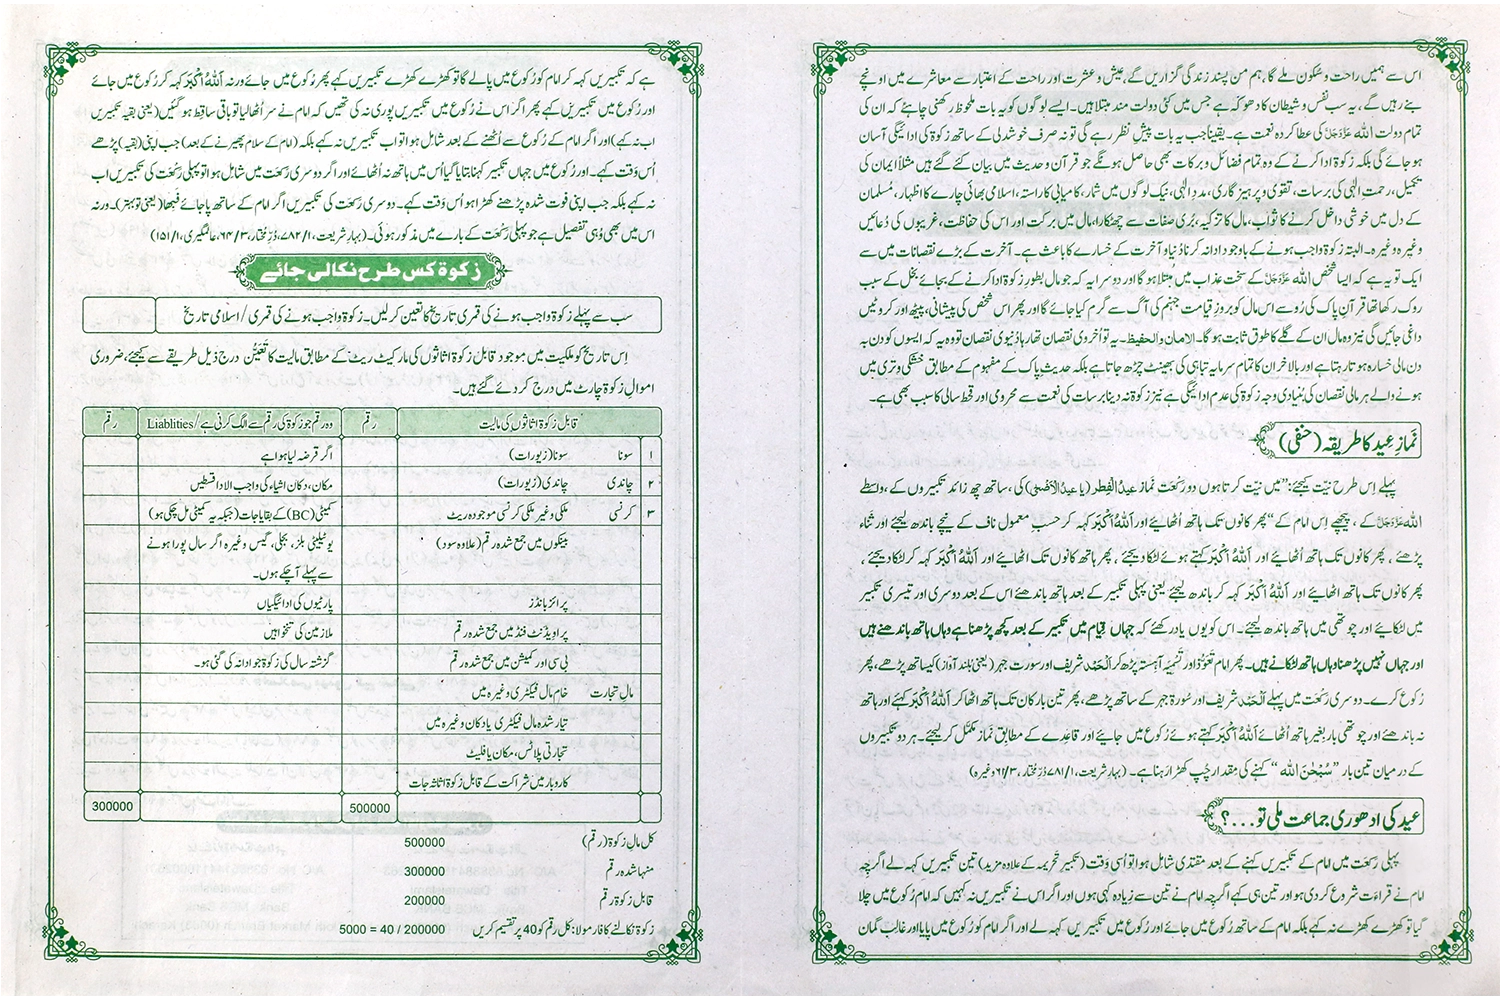 اس سے ہمیں راحت و سُکون ملے گا، ہم من پسند زندگی گزاریں گے، عیش و عشرت اور راحت کے اعتبار سے معاشرے میں اونچے
بنے رہیں گے، یہ سب نفس و شیطان کا دھوکہ ہے جس میں کئی دولت مند مبتلا ہیں۔ ایسے لوگوں کو یہ بات ملحوظ رکھنی چاہئے کہ ان کی
تمام دولت اللہ عَزَّوَجَلَّ کی عطا کردہ نعمت ہے۔ یقیناً جب یہ بات پیشِ نظر رہے گی تو نہ صرف خوشدلی کے ساتھ زکوٰۃ کی ادائیگی آسان
ہو جائے گی بلکہ زکوٰۃ ادا کرنے کے وہ تمام فضائل و برکات بھی حاصل ہونگے جو قرآن و حدیث میں بیان کئے گئے ہیں مثلاً ایمان کی
تکمیل، رحمتِ الٰہی کی برسات، تقویٰ و پرہیزگاری، مددِ الٰہی، نیک لوگوں میں شمار، کامیابی کا راستہ، اسلامی بھائی چارے کا اظہار، مُسلمان
کے دل میں خوشی داخل کرنے کا ثواب، مال کا تزکیہ، بُری صفات سے چھٹکارا، مال میں برکت اور اس کی حفاظت، غریبوں کی دُعائیں
وغیرہ وغیرہ۔ البتہ زکوٰۃ واجب ہونے کے باوجود ادا نہ کرنا دُنیا و آخرت کے خسارے کا باعث ہے۔ آخرت کے بڑے نقصانات میں سے
ایک تو یہ ہے کہ ایسا شخص اللہ عَزَّوَجَلَّ کے سخت عذاب میں مبتلا ہوگا اور دوسرا یہ کہ جو مال بطورِ زکوٰۃ ادا کرنے کے بجائے بخل کے سبب
روک رکھا تھا قرآنِ پاک کی رُو سے اس مال کو بروزِ قیامت جہنم کی آگ سے گرم کیا جائے گا اور پھر اس شخص کی پیشانی، پیٹھ اور کروٹیں
داغی جائیں گی نیز وہ مال ان کے گلے کا طوق ثابت ہوگا۔ الامان والحفیظ۔ یہ تو اُخروی نقصان تھا رہا دُنیوی نقصان تو وہ یہ کہ ایسوں کو دن بہ
دن مالی خسارہ ہوتا رہتا ہے اور بالآخر ان کا تمام سرمایہ تباہی کی بھینٹ چڑھ جاتا ہے بلکہ حدیثِ پاک کے مفہوم کے مطابق خشکی و تری میں
ہونے والے ہر مالی نقصان کی بُنیادی وجہ زکوٰۃ کی عدم ادائیگی ہے نیز زکوٰۃ نہ دینا برسات کی نعمت سے محرومی اور قحط سالی کا سبب بھی ہے۔
نَمازِ عِید کا طریقہ (حنفی)
پہلے اِس طرح نیّت کیجئے: ”میں نیّت کرتا ہوں دو رَکعت نَماز عیدُ الفِطر (یا عیدُ الاَضْحٰی) کی، ساتھ چھ زائد تکبیروں کے، واسِطے
اللہ عَزَّوَجَلَّ کے، پیچھے اِس امام کے“ پھر کانوں تک ہاتھ اُٹھائیے اور اَللّٰہُ اَکْبَر کہہ کر حسبِ معمول ناف کے نیچے باندھ لیجئے اور ثَناء
پڑھئے، پھر کانوں تک ہاتھ اُٹھائیے اور اَللّٰہُ اَکْبَر کہتے ہوئے لٹکا دیجئے، پھر ہاتھ کانوں تک اٹھائیے اور اَللّٰہُ اَکْبَر کہہ کر لٹکا دیجئے،
پھر کانوں تک ہاتھ اٹھائیے اور اَللّٰہُ اَکْبَر کہہ کر باندھ لیجئے یعنی پہلی تکبیر کے بعد ہاتھ باندھئے اس کے بعد دوسری اور تیسری تکبیر
میں لٹکائیے اور چوتھی میں ہاتھ باندھ لیجئے۔ اس کو یوں یاد رکھئے کہ جہاں قِیام میں تکبیر کے بعد کچھ پڑھنا ہے وہاں ہاتھ باندھنے ہیں
اور جہاں نہیں پڑھنا وہاں ہاتھ لٹکانے ہیں۔ پھر امام تَعَوُّذ اور تَسْمِیَہ آہستہ پڑھ کر اَلْحَمْد شریف اور سورت جہر (یعنی بلند آواز) کیساتھ پڑھے، پھر
رُکوع کرے۔ دوسری رَکْعَت میں پہلے اَلْحَمْد شریف اور سُورۃ جہر کے ساتھ پڑھے، پھر تین بار کان تک ہاتھ اٹھا کر اَللّٰہُ اَکْبَر کہئے اور ہاتھ
نہ باندھئے اور چوتھی بار بغیر ہاتھ اُٹھائے اَللّٰہُ اَکْبَر کہتے ہوئے رُکوع میں جایئے اور قاعِدے کے مطابِق نَماز مکمَّل کر لیجئے۔ ہر دو تکبیروں
کے درمیان تین بار ”سُبْحٰنَ اللہ“ کہنے کی مِقدار چُپ کھڑا رَہنا ہے۔ (بہارِ شریعت، ۱/۷۸۱، دُرِّ مُختار، ۳/۶۱ وغیرہ)
عید کی ادھوری جماعت ملی تو...؟
پہلی رَکعَت میں امام کے تکبیریں کہنے کے بعد مقتدی شامل ہوا تو اُسی وَقت (تکبیرِ تَحریمہ کے علاوہ مزید) تین تکبیریں کہہ لے اگرچہ
امام نے قِراءَت شروع کر دی ہو اور تین ہی کہے اگرچہ امام نے تین سے زِیادہ کہی ہوں اور اگر اس نے تکبیریں نہ کہیں کہ امام رُکوع میں چلا
گیا تو کھڑے کھڑے نہ کہے بلکہ امام کے ساتھ رُکوع میں جائے اور رُکوع میں تکبیریں کہہ لے اور اگر امام کو رُکوع میں پایا اور غالب گمان
ہے کہ تکبیریں کہہ کر امام کو رُکوع میں پالے گا تو کھڑے کھڑے تکبیریں کہے پھر رُکوع میں جائے ورنہ اَللّٰہُ اَکْبَر کہہ کر رُکوع میں جائے
اور رُکوع میں تکبیریں کہے پھر اگر اس نے رُکوع میں تکبیریں پوری نہ کی تھیں کہ امام نے سر اُٹھا لیا تو باقی ساقِط ہو گئیں (یعنی بقیہ تکبیریں
اب نہ کہے) اور اگر امام کے رُکوع سے اُٹھنے کے بعد شامل ہوا تو اب تکبیریں نہ کہے بلکہ (امام کے سلام پھیرنے کے بعد) جب اپنی (بقیہ) پڑھے
اُس وَقت کہے۔ اور رُکوع میں جہاں تکبیر کہنا بتایا گیا اُس میں ہاتھ نہ اُٹھائے اور اگر دوسری رَکعَت میں شامل ہوا تو پہلی رَکْعَت کی تکبیریں اب
نہ کہے بلکہ جب اپنی فوت شدہ پڑھنے کھڑا ہو اُس وَقت کہے۔ دوسری رَکعَت کی تکبیریں اگر امام کے ساتھ پا جائے فَبِھا (یعنی تو بہتر)۔ ورنہ
اس میں بھی وُہی تفصیل ہے جو پہلی رَکْعَت کے بارے میں مذکور ہوئی۔ (بہارِ شریعت، ۱/۷۸۲، دُرِّ مُختار، ۳/۶۴، عالمگیری، ۱/۱۵۱)
زکوٰۃ کس طرح نکالی جائے
سب سے پہلے زکوٰۃ واجب ہونے کی قمری تاریخ کا تعین کر لیں۔ زکوٰۃ واجب ہونے کی قمری/اسلامی تاریخ
اِس تاریخ کو ملکیت میں موجود قابلِ زکوٰۃ اثاثوں کی مارکیٹ ریٹ کے مطابق مالیت کا تَعَیُّن درج ذیل طریقے سے کیجئے، ضروری
اموالِ زکوٰۃ چارٹ میں درج کر دئے گئے ہیں۔
قابل زکوٰۃ اثاثوں کی مالیت رقم وہ رقم جو زکوٰۃ کی رقم سے الگ کرنی ہے/Liablities رقم
۱ سونا سونا (زیورات) اگر قرضہ لیا ہوا ہے
۲ چاندی چاندی (زیورات) مکان، دکان اشیاء کی واجب الادا قسطیں
۳ کرنسی ملکی و غیر ملکی کرنسی موجودہ ریٹ کمیٹی (BC) کے بقایا جات (جبکہ یہ کمیٹی مل چکی ہو)
بینکوں میں جمع شدہ رقم (علاوہ سود) یوٹیلیٹی بلز، بجلی، گیس وغیرہ اگر سال پورا ہونے
سے پہلے آچکے ہوں۔
پرائز بانڈز پارٹیوں کی ادائیگیاں
پراویڈنٹ فنڈ میں جمع شدہ رقم ملازمین کی تنخواہیں
بی سی اور کمیشن میں جمع شدہ رقم گزشتہ سال کی زکوٰۃ جو ادا نہ کی گئی ہو۔
مالِ تجارت خام مال فیکٹری وغیرہ میں
تیار شدہ مال فیکٹری یا دکان وغیرہ میں
تجارتی پلاٹس، مکان یا فلیٹ
کاروبار میں شراکت کے قابل زکوٰۃ اثاثہ جات
500000 300000
کل مالِ زکوٰۃ (رقم) 500000
منہا شدہ رقم 300000
قابل زکوٰۃ رقم 200000
زکوٰۃ نکالنے کا فارمولا: کُل رقم کو 40 پر تقسیم کریں 5000 = 40 / 200000